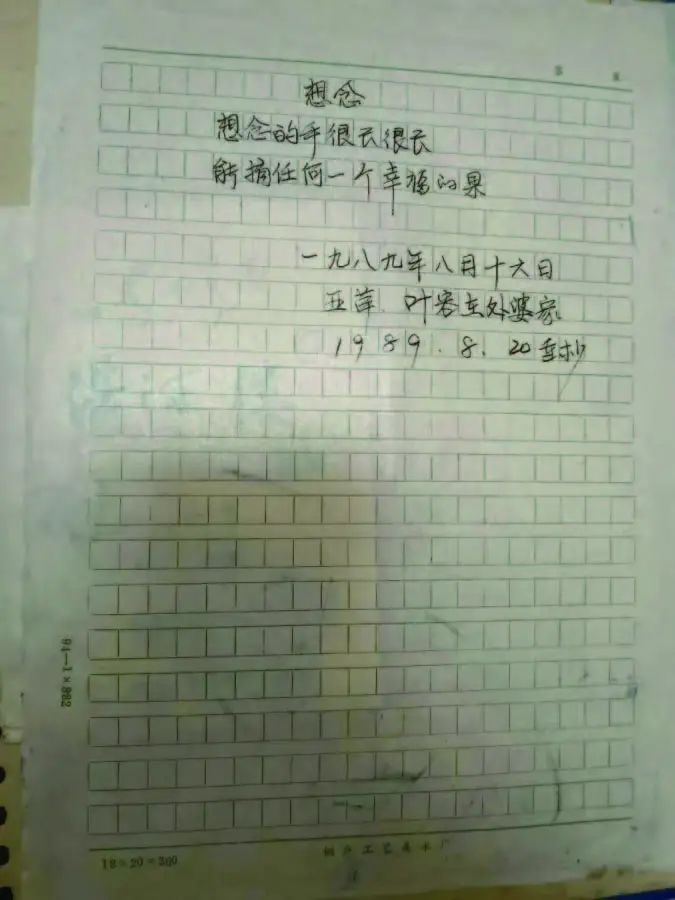 第 页
想念
想念的手很长很长
能摘任何一个幸福的果
一九八九年八月十六日
亚萍、叶客在外婆家
1989.8.20重抄
94—1×882
18×20=360
工艺美术厂